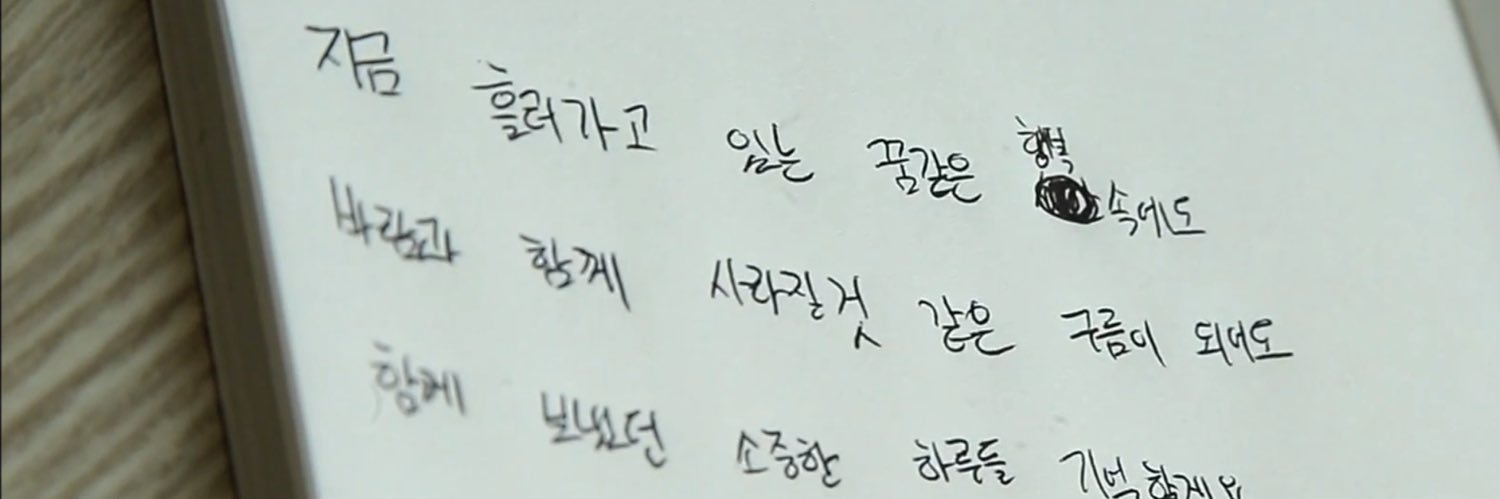 지금 흘러가고 있는 꿈같은 행복 속에도
바람과 함께 사라질것 같은 구름이 되어도
함께 보냈던 소중한 하루들 기억할게요